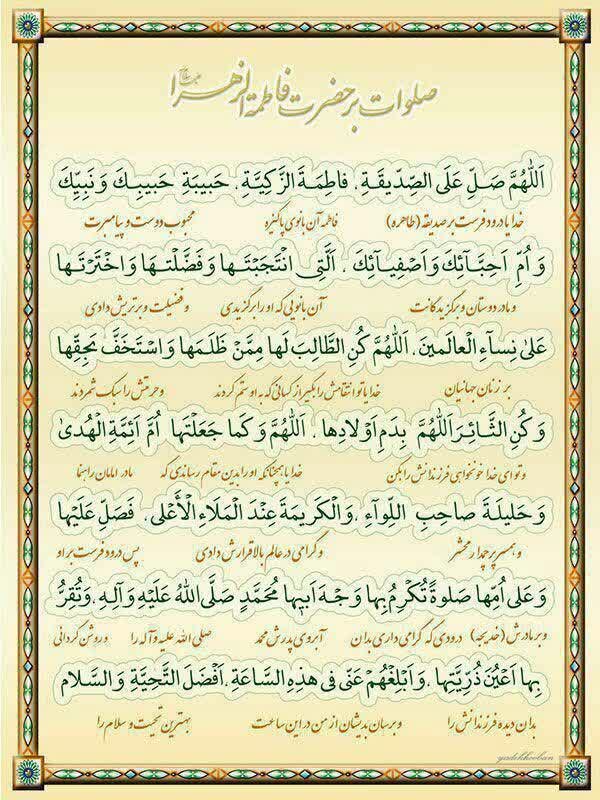 صلوات بر حضرت فاطمة الزهرا
اَللّٰهُمَّ صَلِّ عَلَى الصِّدّيقَةِ، فاطِمَةَ الزَّكِيَّةِ، حَبيبَةِ حَبيبِكَ وَ نَبِيِّكَ
خدایا درود فرست بر صدیقه (طاهره) فاطمه آن بانوی پاکیزه محبوب دوست و پیامبرت
وَ اُمِّ اَحِبَّآئِكَ وَ اَصْفِيآئِكَ، اَلَّتِى انْتَجَبْتَها وَ فَضَّلْتَها وَ اخْتَرْتَها
و مادر دوستان و برگزیدگانت آن بانویی که او را برگزیدی و فضیلت و برتریش دادی
عَلى نِسآءِ الْعالَمينَ، اَللّٰهُمَّ كُنِ الطّالِبَ لَها مِمَّنْ ظَلَمَها وَ اسْتَخَفَّ بَحِقِّها
بر زنان جهانیان خدایا تو انتقامش را بگیر از کسانی که به او ستم کردند و حرمتش را سبک شمردند
وَ كُنِ الثّائِرَ اَللّٰهُمَّ بِدَمِ اَوْلادِها، اَللّٰهُمَّ وَ كَما جَعَلْتَها اُمَّ اَئِمَّةِ الْهُدىٰ
و تو ای خدا خونخواهی فرزندانش را بکن خدایا همچنانکه او را بدین مقام رساندی که مادر امامان راهنما
وَ حَليلَةَ صاحِبِ اللِّوآءِ، وَ الْكَريمَةَ عِنْدَ الْمَلَاءِ الْأَعْلى، فَصَلِّ عَلَيْها
و همسر پرچمدار محشر و گرامی در عالم بالا قرارش دادی پس درود فرست بر او
وَ عَلى اُمِّها صَلوةً تُكْرِمُ بِها وَجْهَ اَبيها مُحَمَّدٍ صَلَّى اللهُ عَلَيْهِ وَ آلِهِ، وَ تُقِرُّ
و بر مادرش (خدیجه) درودی که گرامی داری بدان آبروی پدرش محمد صلی الله علیه و آله را و روشن گردانی
بِها اَعْيُنَ ذُرِّيَّتِها، وَ اَبْلِغْهُمْ عَنّى فى هذِهِ السّاعَةِ، اَفْضَلَ التَّحِيَّةِ وَ السَّلام
بدان دیده فرزندانش را و برسان بدیشان از من در این ساعت بهترین تحیت و سلام را
yadekhooban